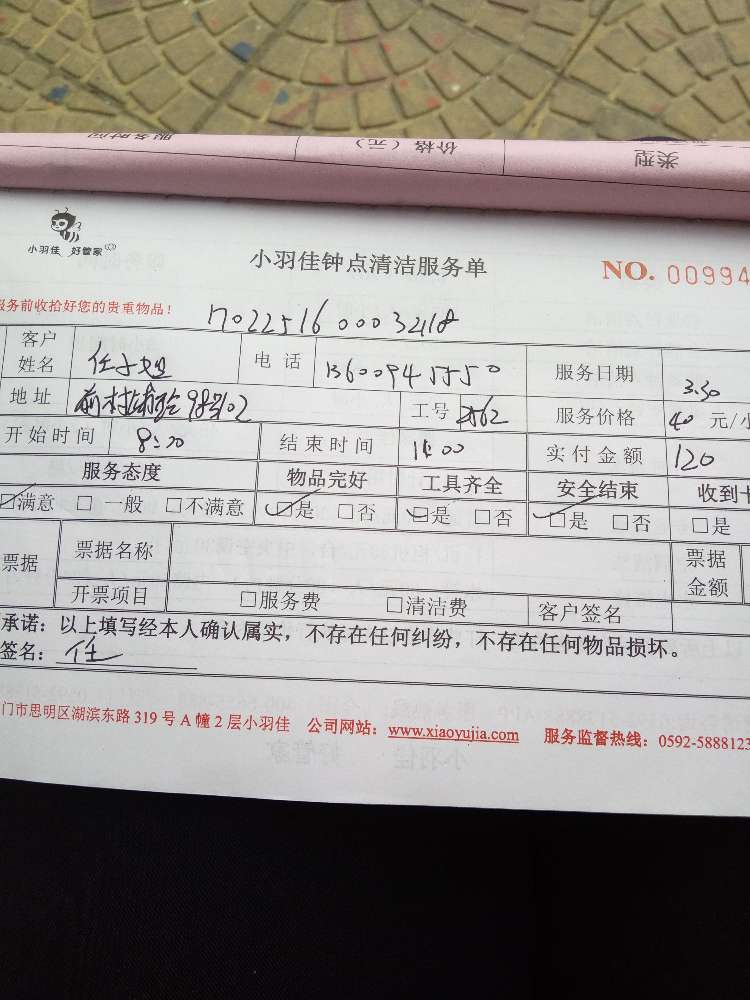 服务时间 价格（元） 类型
小羽佳 好管家
小羽佳钟点清洁服务单 NO. 00994
服务前收拾好您的贵重物品！ 170225160003218
客户姓名 任小姐 电话 13600945550 服务日期 3.30
地址 前村埔 98号102 工号 2562 服务价格 40 元/小
开始时间 8:00 结束时间 11:00 实付金额 120
服务态度 物品完好 工具齐全 安全结束 收到
☑满意 □一般 □不满意 ☑是 □否 ☑是 □否 ☑是 □否 □是
票据 票据名称 票据金额
开票项目 □服务费 □清洁费 客户签名
承诺：以上填写经本人确认属实，不存在任何纠纷，不存在任何物品损坏。
签名：任
门市思明区湖滨东路 319 号 A 幢 2 层小羽佳 公司网站：www.xiaoyujia.com 服务监督热线：0592-5888123
小羽佳 好管家